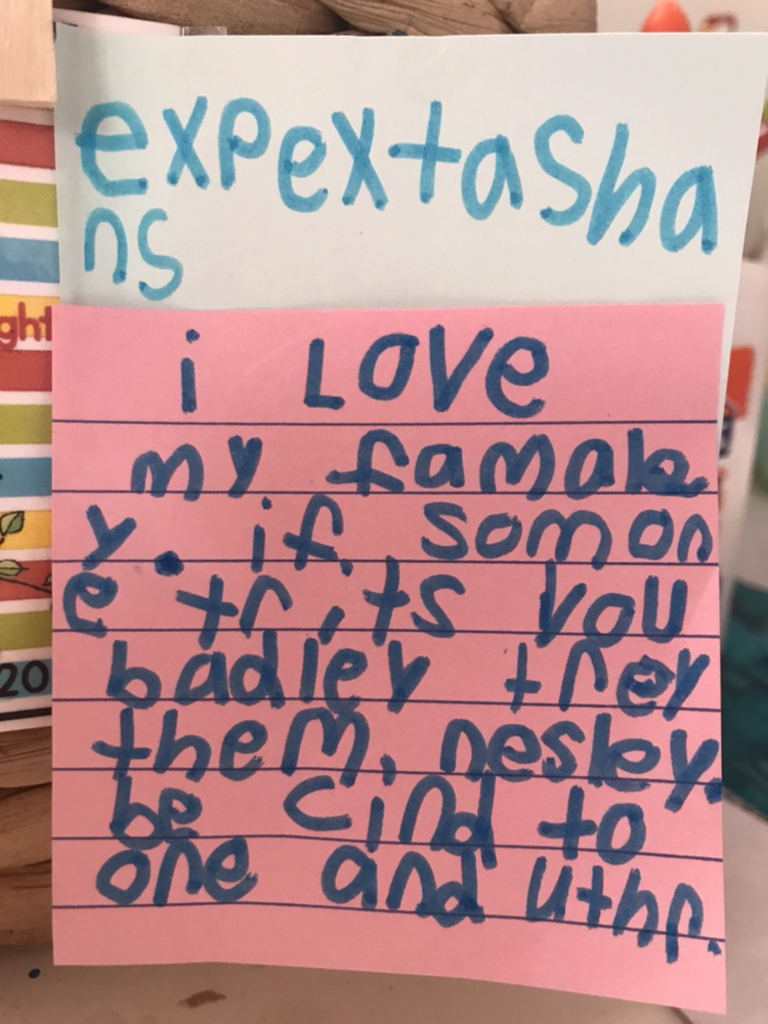 expextasha
ns
i Love
my famale
y. if somon
e tr,ts you
badley trey
them, nesley.
be cind to
one and uthr.
ght
20